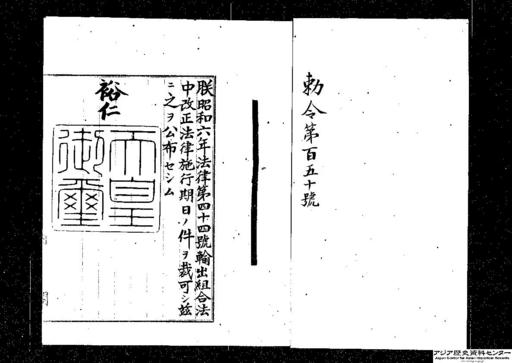 勅令第百五十號
朕昭和六年法律第四十四號輸出組合法
中改正法律施行期日ノ件ヲ裁可シ茲
ニ之ヲ公布セシム
裕仁
天皇
御璽
アジア歴史資料センター
Japan Center for Asian Historical Records